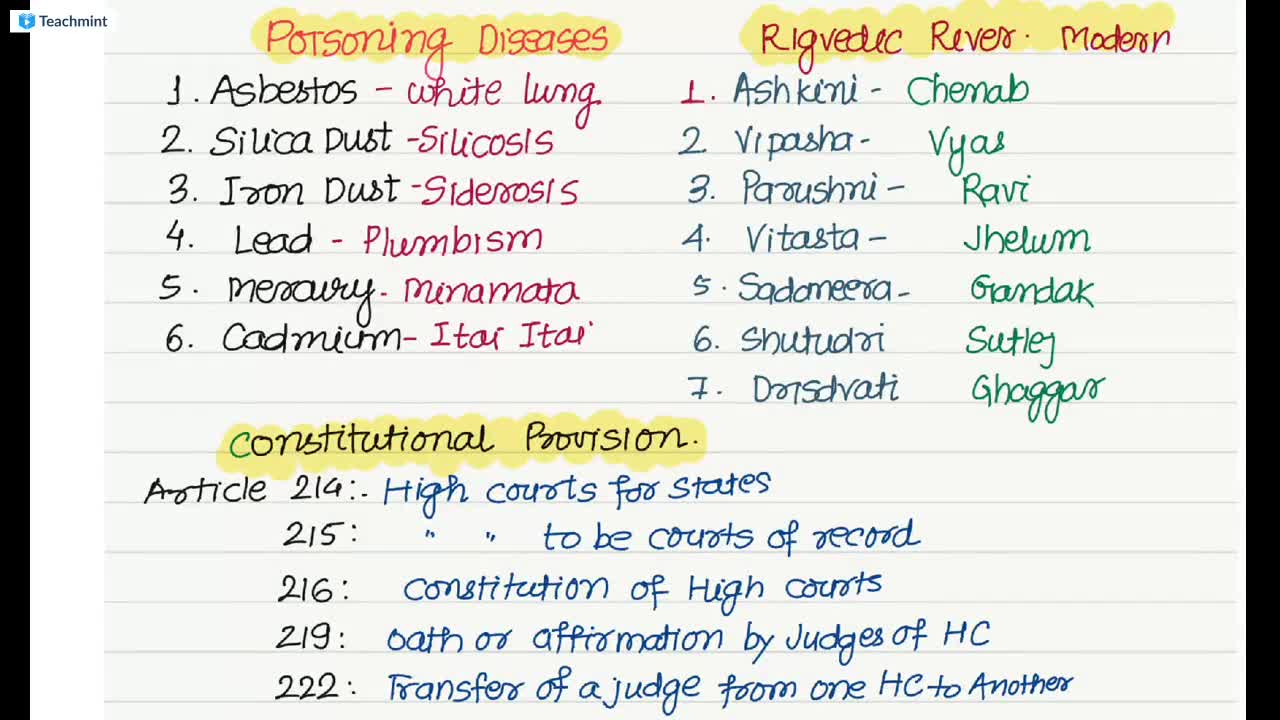 Teachmint
Poisoning Diseases
1. Asbestos - white lung
2. Silica Dust - Silicosis
3. Iron Dust - Siderosis
4. Lead - Plumbism
5. Mercury - Minamata
6. Cadmium - Itai Itai
Rigvedic River. Modern
1. Ashkini - Chenab
2. Vipasha - Vyas
3. Parushni - Ravi
4. Vitasta - Jhelum
5. Sadaneera - Gandak
6. Shutudri Sutlej
7. Drisdvati Ghaggar
Constitutional Provision.
Article 214:- High courts for states
215: " " to be courts of record
216: Constitution of High courts
219: Oath or affirmation by Judges of HC
222: Transfer of a judge from one HC to Another